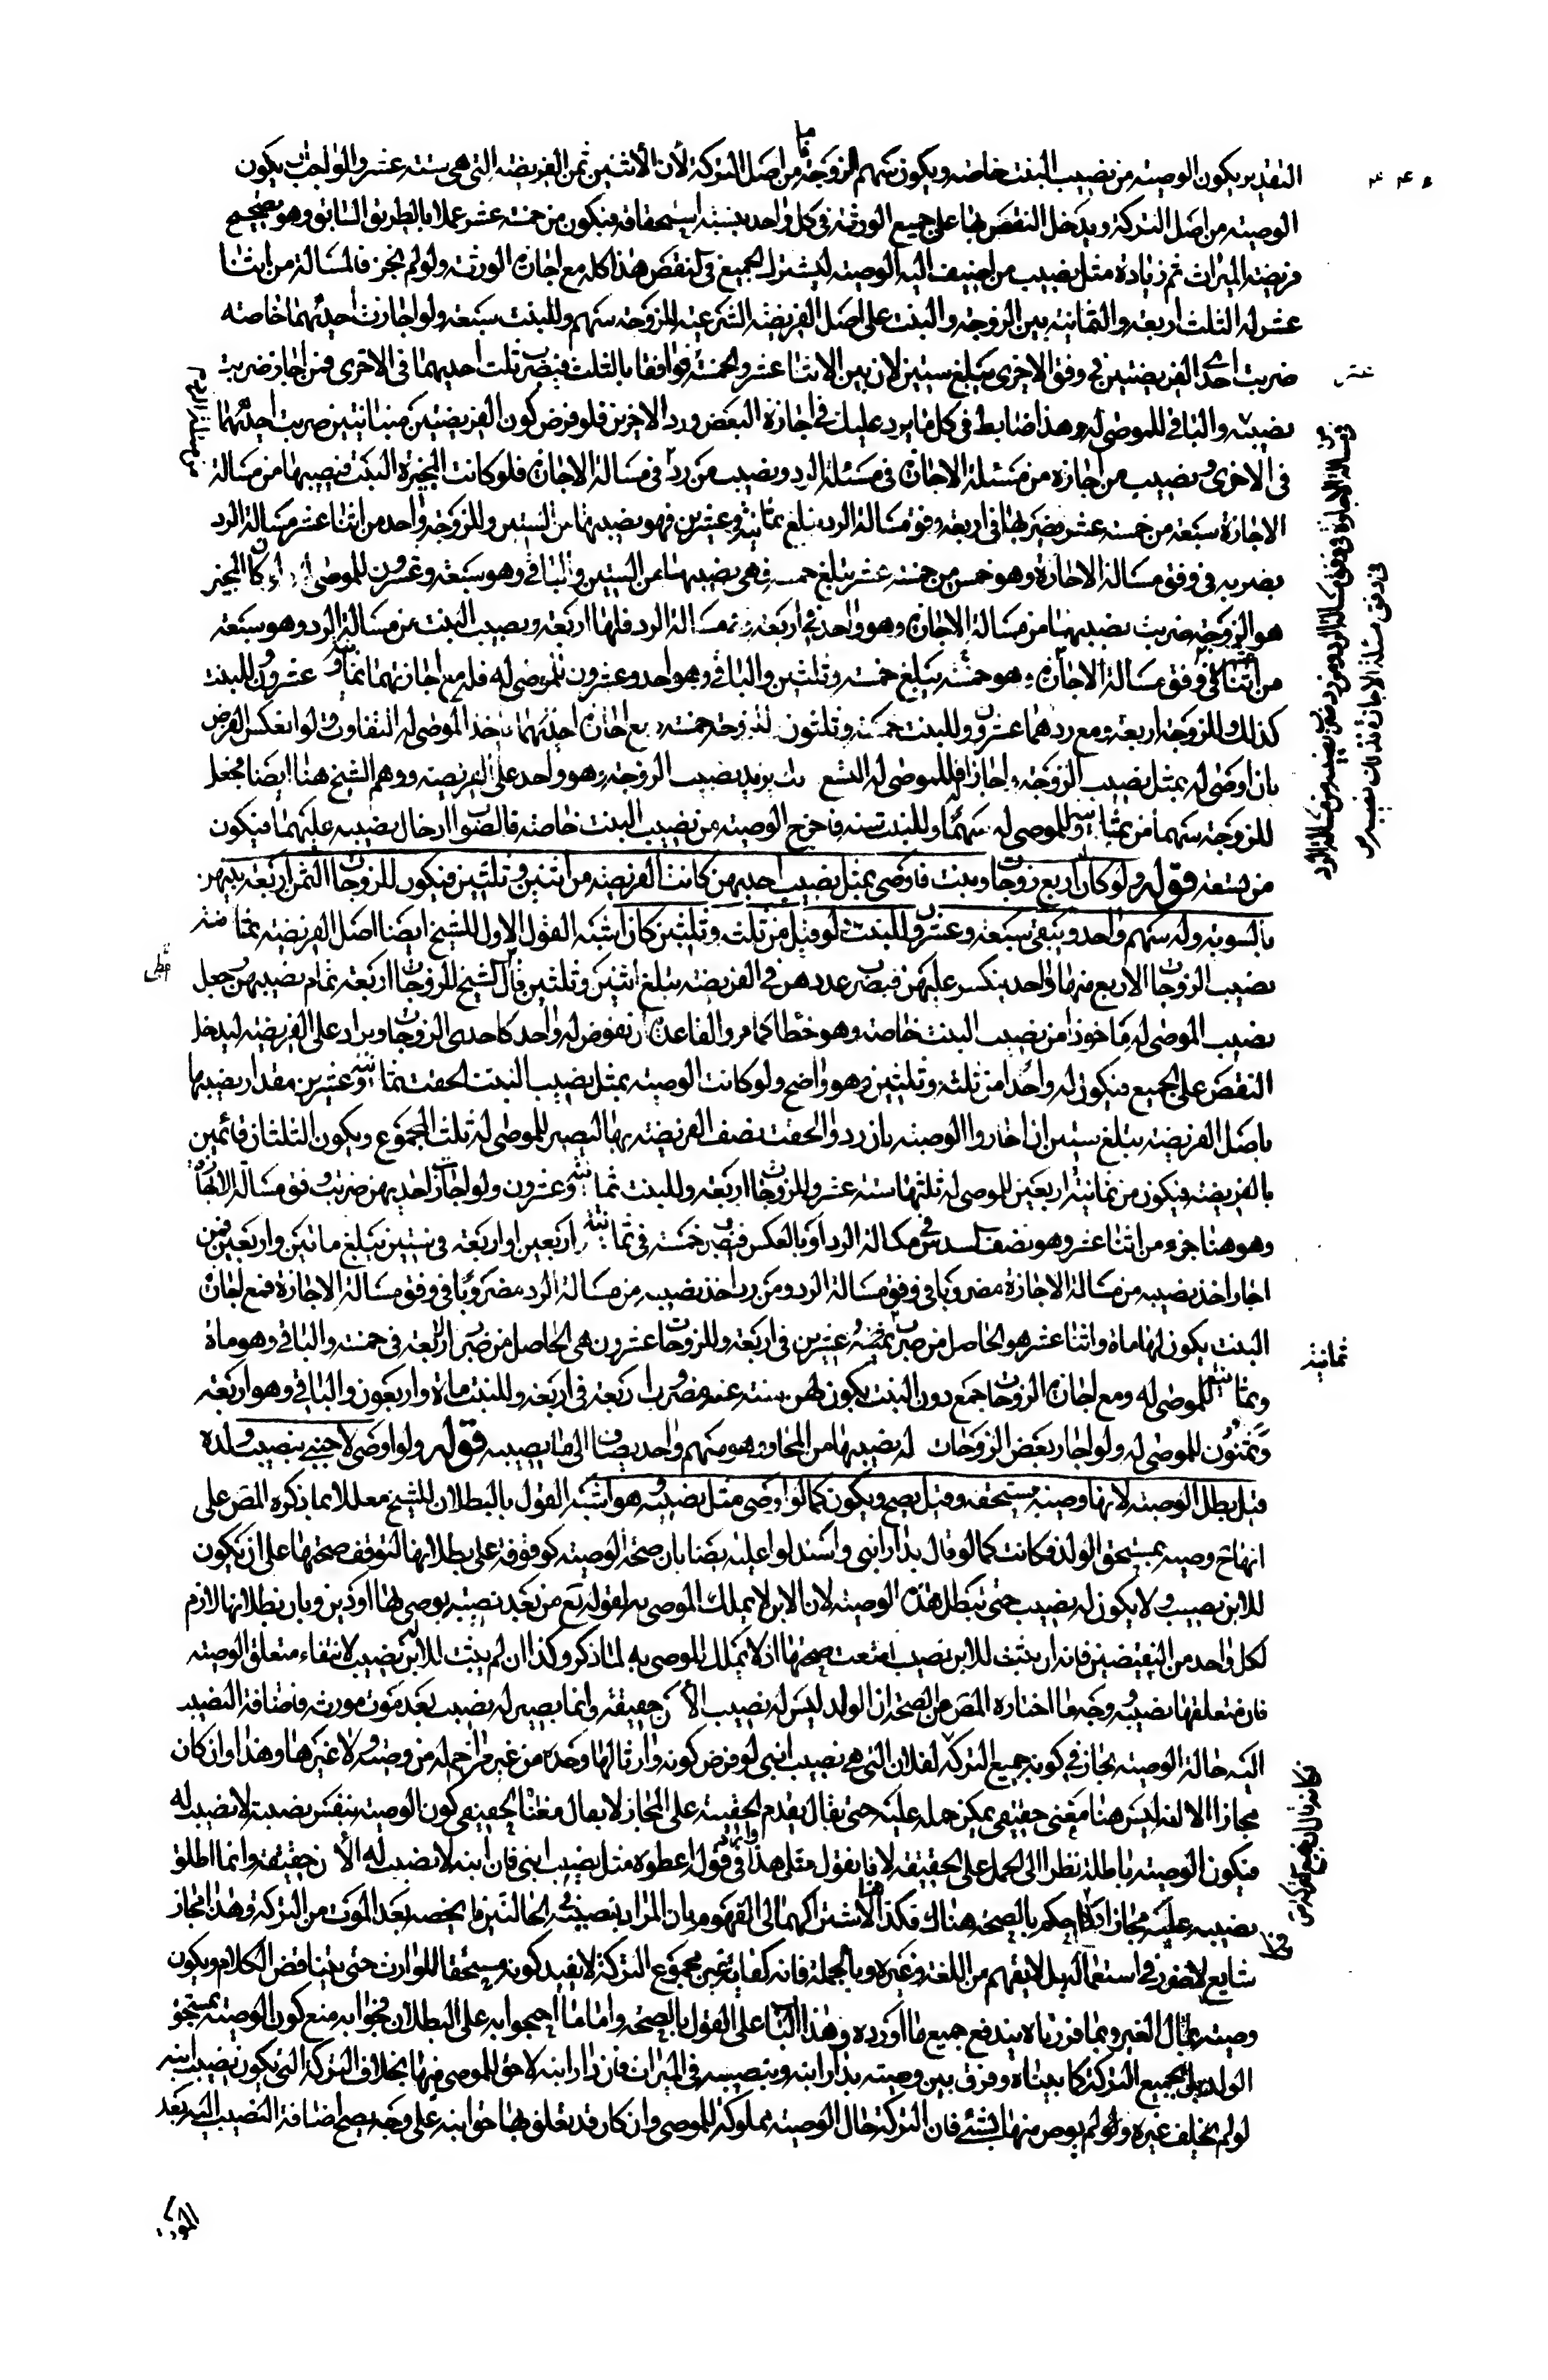 التقدير يكون الوصية من نصيب البنت خاصة ويكون سهم الزوجة من اصل التركة لان الاثنين ثمن الفريضة التي هي ستة عشر والواجب يكون
الوصية من اصل التركة ويدخل النقص بها على جميع الورثة في كل واحد بنسبة استحقاقه فيكون من خمسة عشر عملا بالطريق السابق وهو تصحيح
فريضة الميراث ثم زيادة مثل نصيب من اضيف اليه الوصية ليشترك الجميع في النقص هذا كله مع اجازة الورثة ولو لم يجز فالمسالة من اثنا
عشر له الثلث اربعة والثمانية بين الزوجة والبنت على اصل الفريضة الشرعية للزوجة سهم وللبنت سبعة ولو اجازت احديهما خاصة
ضربت احدى الفريضتين في وفق الاخرى يبلغ ستين لان بين الاثنا عشر والخمسة توافقا بالثلث فيضرب ثلث احديهما في الاخرى فمن اجاز ضربت
نصيبه والباقي للموصى له وهذا ضابط في كل ما يرد عليك في اجازة البعض ورد الاخرين فلو فرض كون الفريضتين متباينتين ضربت احديهما
في الاخرى ونصيب من اجازه من مسئلة الاجازة في مسئلة الرد ونصيب من رد في مسالة الاجازة فلو كانت المجيزة البنت فنصيبها من مسالة
الاجازة سبعة من خمسة عشر مضربها في اربعة وفق مسالة الرد تبلغ ثمانية وعشرين فهو نصيبها من الستين وللزوجة واحد من اثنا عشر مسالة الرد
نضربه في وفق مسالة الاجازة وهو خمس من خمسة عشر تبلغ خمسة هي نصيبها من الستين والباقي وهو سبعة وعشرون للموصى له وان كان المجيز
هو الزوجة ضربت نصيبها من مسالة الاجازة وهو واحد في اربعة وفق مسالة الرد فلها اربعة ونصيب البنت من مسالة الرد وهو سبعة
من اثنا عشر في وفق مسالة الاجازة وهو خمسة يبلغ خمسة وثلثين والباقي وهو احد وعشرون للموصى له فله مع اجازتهما ثمانية وعشرون للبنت
كذلك وللزوجة اربعة ومع ردهما عشرون وللبنت خمسة وثلثون للزوجة خمسة ومع اجازة احديهما ياخذ الموصى له التفاوت ولو انعكس الفرض
بان اوصى له بمثل نصيب الزوجة واجازتا فللموصى له التسع بان يزيد نصيب الزوجة وهو واحد على الفريضة ووهم الشيخ هنا ايضا فجعل
للزوجة سهما من ثمانية وللموصى له سهما وللبنت ستة فاخرج الوصية من نصيب البنت خاصة فالصواب ادخال نصيبه عليهما فيكون
من تسعة قوله ولو كان اربع زوجات وبنت فاوصى بمثل نصيب احديهن كانت الفريضة من اثنين وثلثين فيكون للزوجات الثمن اربعة بينهن
بالسوية وله سهم واحد ويبقى سبعة وعشرون للبنت ولو قيل من ثلثة وثلثين كان اشبه القول الاول للشيخ ايضا اصل الفريضة ثمانية
نصيب الزوجات الاربع منها واحد ينكسر عليهن فيضرب عددهن في الفريضة يبلغ اثنين وثلثين قال الشيخ للزوجات اربعة تمام نصيبهن وجعل
نصيب الموصى له ماخوذا من نصيب البنت خاصة وهو خطا كما مر والقاعدة ان نفرض له واحد كاحدى الزوجات ويزاد على الفريضة ليدخل
النقص على الجميع فيكون له واحدا من ثلثة وثلثين وهو واضح ولو كانت الوصية بمثل نصيب البنت لحقت ثمانية وعشرين مقدار نصيبها
باصل الفريضة يبلغ ستين ان اجازوا الوصية بان ردوا الحقت نصف الفريضة بها ليصير للموصى له ثلث المجموع ويكون الثلثان قائمين
بالفريضة فيكون من ثمانية اربعين للموصى له ثلثها ستة عشر وللزوجات اربعة وللبنت ثمانية وعشرون ولو اجازت احديهن ضربت وفق مسالة الاجازة
وهو هنا جزء من اثنا عشر وهو نصف سدس في مسالة الرد او بالعكس فيضرب خمسة في ثمانية اربعين او اربعة في ستين يبلغ مائتين واربعين فمن
اجاز اخذ نصيبه من مسالة الاجازة مضروبا في وفق مسالة الرد ومن رد اخذ نصيبه من مسالة الرد مضروبا في وفق مسالة الاجازة فمع اجازة
البنت يكون لها ماة واثنا عشر هو الحاصل من ضرب ثمانية وعشرين في اربعة وللزوجات عشرون هي الحاصل من ضرب اربعة في خمسة والباقي وهو ماة
وثمانية للموصى له ومع اجازة الزوجات جمع دون البنت يكون لهن ستة عشر مضروب اربعة في اربعة وللبنت ماة واربعون والباقي وهو اربعة
وثمنون للموصى له ولو اجاز بعض الزوجات له نصيبها من المجاوز وهو سهم واحد يضاف الى ما يصيبه قوله ولو اوصى لاجنبي بنصيب ولده
قيل يبطل الوصية لانها وصية بمستحقه وقيل يصح ويكون كما لو اوصى بمثل نصيبه وهو اشبه القول بالبطلان للشيخ معللا بما ذكره المص على
انها ح وصية بمستحق الولد فكانت كما لو قال بدار ابني واستدلوا عليه ايضا بان صحة الوصية موقوفة على بطلانها لتوقف صحتها على ان يكون
للابن نصيب ولا يكون له نصيب حتى تبطل هذه الوصية لان الابن لا يملك الموصى به لقوله تع من بعد وصية يوصى بها او دين وبان بطلانها لازم
لكل واحد من النقيضين فانه ان يثبت للابن نصيب امتنعت صحتها اذ لا يملك الموصى به لما ذكر وكذا ان لم يثبت للابن نصيب لانتفاء متعلق الوصية
فان متعلقها نصيبه وجه ما اختاره المص من الصحة ان الولد ليس له نصيب الان حقيقة وانما يصير له نصيب بعد موت مورثه فاضافة النصيب
اليه حالة الوصية مجاز في كونه جميع التركة لفلان التي هي نصيب ابني لو فرض كونه وارثا لها وحده من غير مزاحم له من وصية ولا غيرها وهذا وان كان
مجازا الا انه ليس هنا معنى حقيقي يمكن حمله عليه حتى يقال يقدم الحقيقة على المجاز لا يقال معناه الحقيقي كون الوصية بنفس نصيبه لا نصيب له
فيكون الوصية باطلة نظرا الى الحمل على الحقيقة لانا نقول مثل هذا وارد في قوله اعطوه مثل نصيب ابني فان ابنه لا نصيب له الان حقيقة وانما اطلق
نصيبه عليه مجازا فكما حكم بالصحة هناك فكذا هنا لاشتراكهما الى المفهوم بان المراد بنصيبه في الحالتين ما يخصه بعد الموت من التركة وهذا المجاز
شايع لا قصور في استعماله بل لا يفهم من اللغة وغيره وبالجملة فانه كناية عن مجموع التركة لا بقيد كونه مستحقا للوارث حتى يتناقض الكلام ويكون
وصية بمال الغير وبما قررناه يندفع جميع ما اورده وهذا البناء على القول بالصحة واما ما احتجوا به على البطلان فجوابه منع كون الوصية بمستحق
الولد بل بجميع التركة كما بيناه وفرق بين وصيته بدار ابنه وبنصيبه في الميراث فان دار ابنه لا حق للموصي فيها بخلاف التركة التي يكون نصيب ابنه
لو لم يخلف غيره ولو لم يوص منها بشئ فان التركة حال الوصية مملوكة للموصي وان كان قد تعلق بها حق ابنه على وجه يصح اضافة النصيب اليه بعد
ثمانية